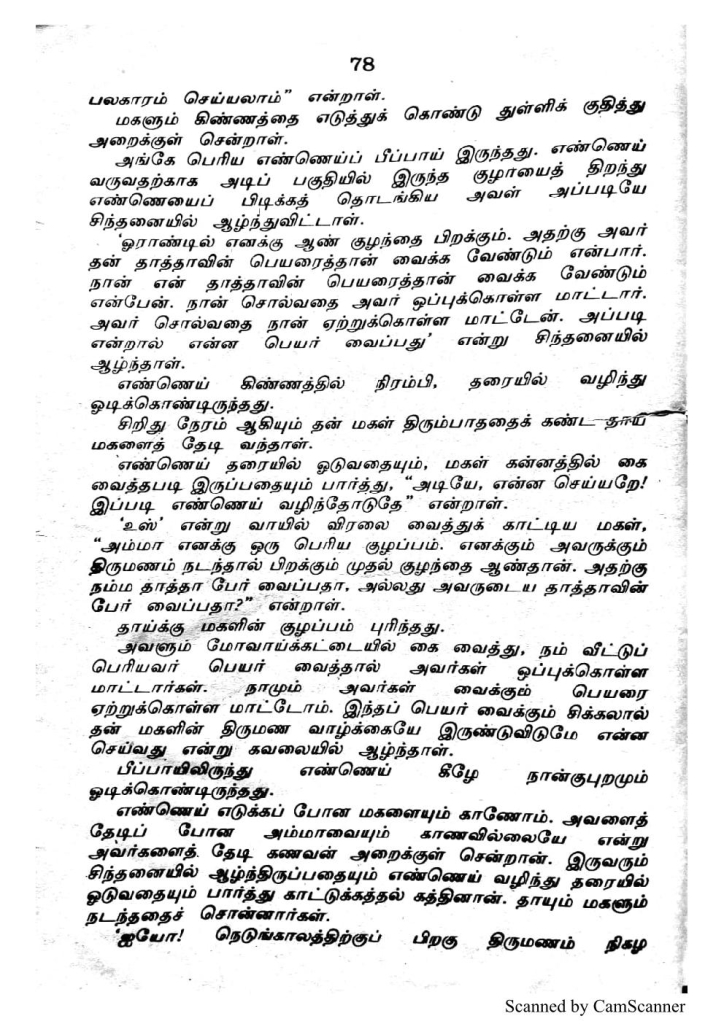 78
பலகாரம் செய்யலாம்” என்றாள்.
மகளும் கிண்ணத்தை எடுத்துக் கொண்டு துள்ளிக் குதித்து
அறைக்குள் சென்றாள்.
அங்கே பெரிய எண்ணெய்ப் பீப்பாய் இருந்தது. எண்ணெய்
வருவதற்காக அடிப் பகுதியில் இருந்த குழாயைத் திறந்து
எண்ணெயைப் பிடிக்கத் தொடங்கிய அவள் அப்படியே
சிந்தனையில் ஆழ்ந்துவிட்டாள்.
‘ஓராண்டில் எனக்கு ஆண் குழந்தை பிறக்கும். அதற்கு அவர்
தன் தாத்தாவின் பெயரைத்தான் வைக்க வேண்டும் என்பார்.
நான் என் தாத்தாவின் பெயரைத்தான் வைக்க வேண்டும்
என்பேன். நான் சொல்வதை அவர் ஒப்புக்கொள்ள மாட்டார்.
அவர் சொல்வதை நான் ஏற்றுக்கொள்ள மாட்டேன். அப்படி
என்றால் என்ன பெயர் வைப்பது’ என்று சிந்தனையில்
ஆழ்ந்தாள்.
எண்ணெய் கிண்ணத்தில் நிரம்பி, தரையில் வழிந்து
ஓடிக்கொண்டிருந்தது.
சிறிது நேரம் ஆகியும் தன் மகள் திரும்பாததைக் கண்ட தாய்
மகளைத் தேடி வந்தாள்.
எண்ணெய் தரையில் ஓடுவதையும், மகள் கன்னத்தில் கை
வைத்தபடி இருப்பதையும் பார்த்து, “அடியே, என்ன செய்யறே!
இப்படி எண்ணெய் வழிந்தோடுதே” என்றாள்.
‘உஸ்’ என்று வாயில் விரலை வைத்துக் காட்டிய மகள்,
“அம்மா எனக்கு ஒரு பெரிய குழப்பம். எனக்கும் அவருக்கும்
திருமணம் நடந்தால் பிறக்கும் முதல் குழந்தை ஆண்தான். அதற்கு
நம்ம தாத்தா பேர் வைப்பதா, அல்லது அவருடைய தாத்தாவின்
பேர் வைப்பதா?” என்றாள்.
தாய்க்கு மகளின் குழப்பம் புரிந்தது.
அவளும் மோவாய்க்கட்டையில் கை வைத்து, நம் வீட்டுப்
பெரியவர் பெயர் வைத்தால் அவர்கள் ஒப்புக்கொள்ள
மாட்டார்கள். நாமும் அவர்கள் வைக்கும் பெயரை
ஏற்றுக்கொள்ள மாட்டோம். இந்தப் பெயர் வைக்கும் சிக்கலால்
தன் மகளின் திருமண வாழ்க்கையே இருண்டுவிடுமே என்ன
செய்வது என்று கவலையில் ஆழ்ந்தாள்.
பீப்பாயிலிருந்து எண்ணெய் கீழே நான்குபுறமும்
ஓடிக்கொண்டிருந்தது.
எண்ணெய் எடுக்கப் போன மகளையும் காணோம். அவளைத்
தேடிப் போன அம்மாவையும் காணவில்லையே என்று
அவர்களைத் தேடி கணவன் அறைக்குள் சென்றான். இருவரும்
சிந்தனையில் ஆழ்ந்திருப்பதையும் எண்ணெய் வழிந்து தரையில்
ஓடுவதையும் பார்த்து காட்டுக்கத்தல் கத்தினான். தாயும் மகளும்
நடந்ததைச் சொன்னார்கள்.
‘ஐயோ! நெடுங்காலத்திற்குப் பிறகு திருமணம் நிகழ
Scanned by CamScanner